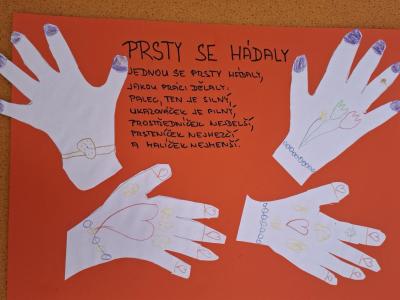 PRSTY SE HÁDALY
JEDNOU SE PRSTY HÁDALY,
JAKOU PRÁCI DĚLALY.
PALEC, TEN JE SILNÝ,
UKAZOVÁČEK JE PILNÝ,
PROSTŘEDNÍČEK NEJDELŠÍ,
PRSTENÍČEK NEJHEZČÍ
A MALÍČEK NEJMENŠÍ.